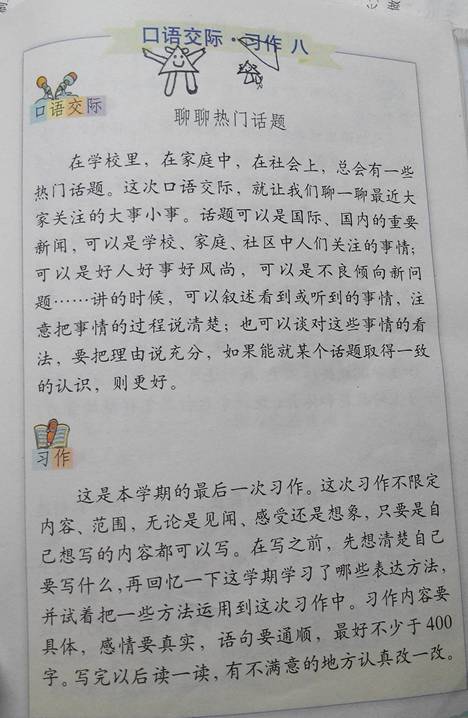 口语交际·习作 八
口语交际
聊聊热门话题
在学校里，在家庭中，在社会上，总会有一些
热门话题。这次口语交际，就让我们聊一聊最近大
家关注的大事小事。话题可以是国际、国内的重要
新闻，可以是学校、家庭、社区中人们关注的事情；
可以是好人好事好风尚，可以是不良倾向新问
题……讲的时候，可以叙述看到或听到的事情，注
意把事情的过程说清楚；也可以谈对这些事情的看
法，要把理由说充分，如果能就某个话题取得一致
的认识，则更好。
习作
这是本学期的最后一次习作。这次习作不限定
内容、范围，无论是见闻、感受还是想象，只要是自
己想写的内容都可以写。在写之前，先想清楚自己
要写什么，再回忆一下这学期学习了哪些表达方法，
并试着把一些方法运用到这次习作中。习作内容要
具体，感情要真实，语句要通顺，最好不少于400
字。写完以后读一读，有不满意的地方认真改一改。